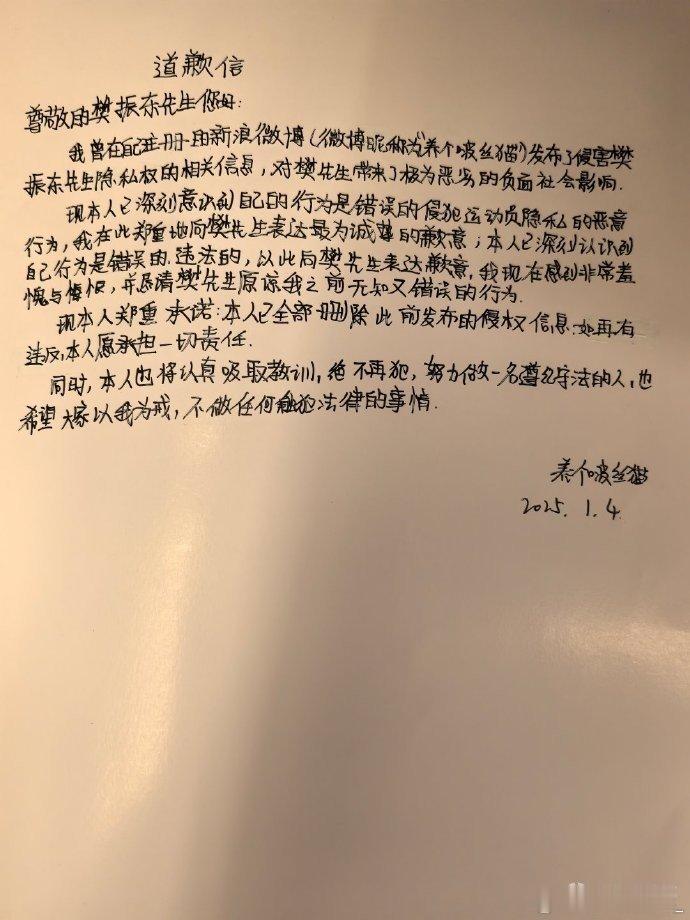 道歉信
尊敬的樊振东先生您好:
我曾在己注册的新浪微博(微博昵称为"养个啵丝猫")发布了侵害樊
振东先生隐私权的相关信息,对樊先生带来了极为恶劣的负面社会影响.
现本人已深刻意识到自己的行为是错误的侵犯运动员隐私的恶意
行为,我在此郑重地向樊先生表达最为诚挚的歉意;本人已深刻认识到
自己行为是错误的.违法的,以此向樊先生表达歉意,我现在感到非常羞
愧与悔恨,并恳请樊先生原谅我之前无知又错误的行为.
现本人郑重承诺:本人已全部删除此前发布的侵权信息.如再有
违反,本人愿承担一切责任.
同时,本人也将认真吸取教训,绝不再犯,努力做一名遵纪守法的人,也
希望大家以我为戒,不做任何触犯法律的事情.
养个啵丝猫
2025.1.4